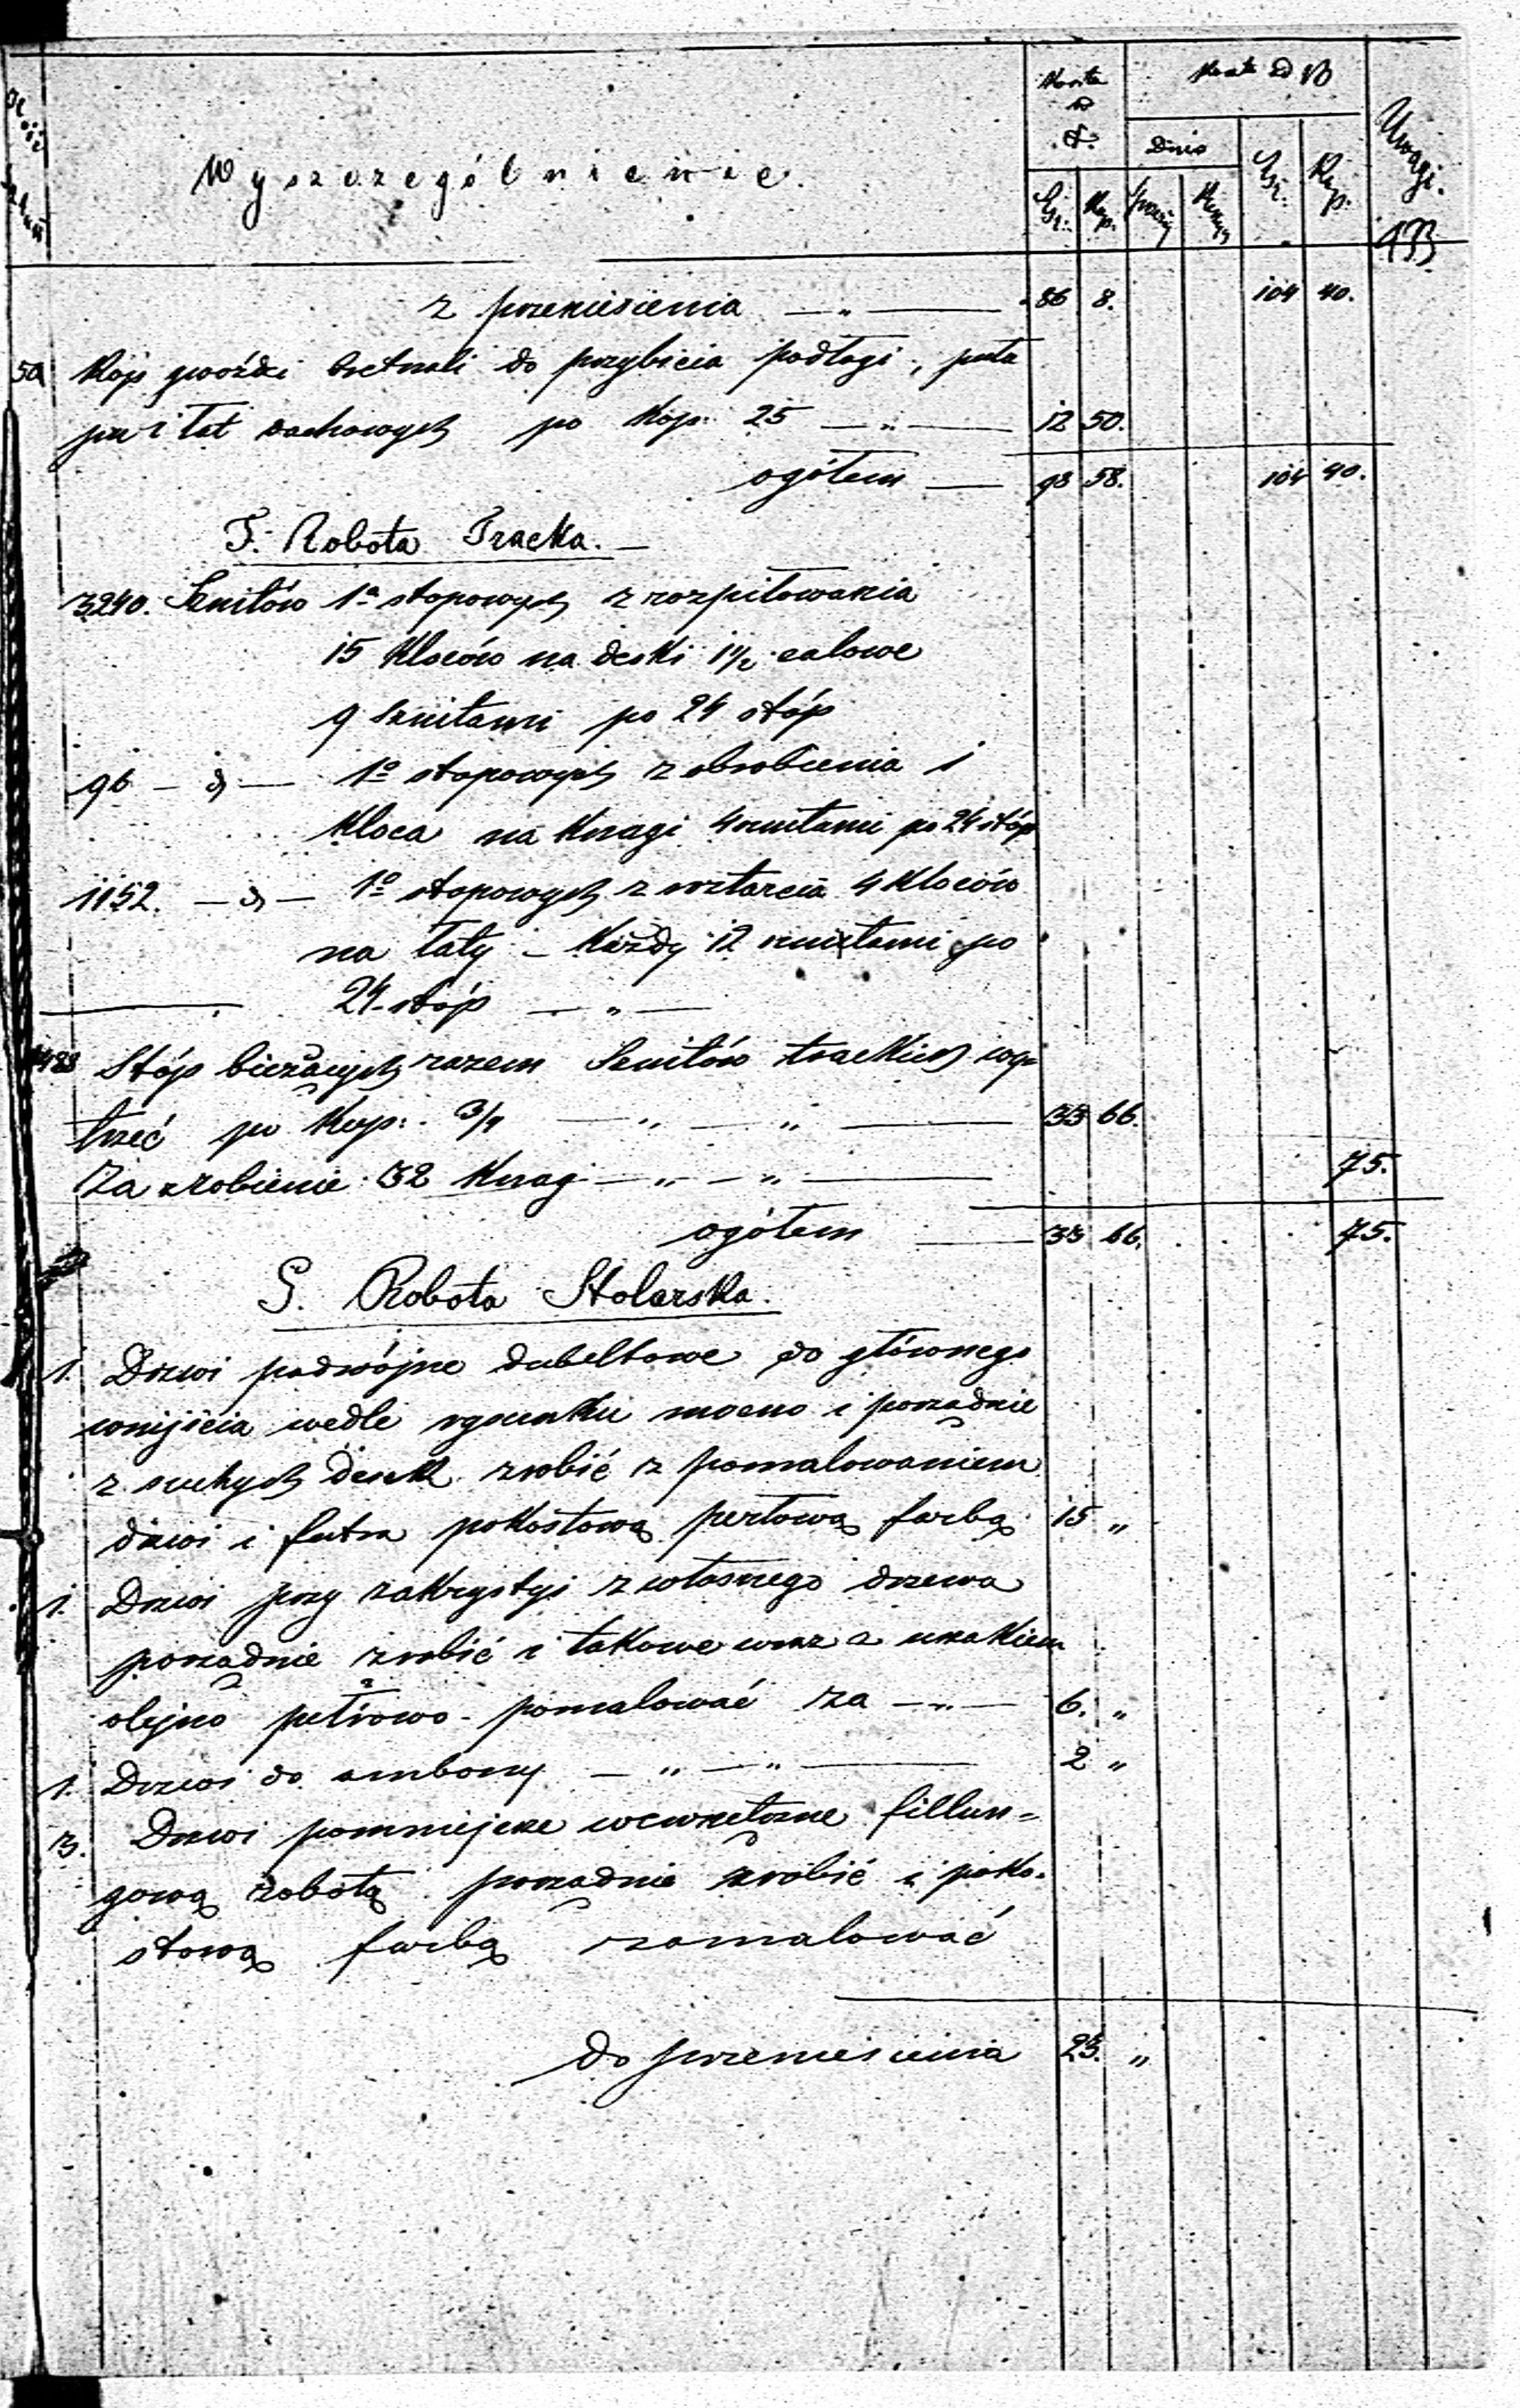 Wyszczególnienie.
Dnie
Rsr: Kop. Rsr: Kop. Uwagi.
193
z przeniesienia — „ — 86 8. 104 40.
50 Kóp gwoździ bretnali do przybicia podłogi, puła
pu i łat dachowych po Kop: 25 — „ — 12 50.
ogółem — 98 58. 104 40.
F. Robota Tracka. —
3240. Sznitów 1º stopowych z rozpiłowania
15 Kloców na deski 1 1/2 calowe
9 sznitami po 24 stóp
96 — d — 1º stopowych z obrobienia 1
Kloca na Knagi 4 sznitami po 24 stóp
1152. — d — 1º stopowych z roztarcia 4 Kloców
na łaty — Każdy 12 sznitami po
24 stóp — „ —
4488 Stóp bieżących razem Sznitów trackich wy=
trzeć po Kop: 3/4 — „ — „ — 33 66.
Za zrobienie 32 Knag — „ — „ — 75.
ogółem — 33 66. 75.
G. Robota Stolarska.
1. Drzwi podwójne dubeltowe do głównego
wnijścia wedle rysunku mocno i porządnie
z suchych desek zrobić z pomalowaniem
drzwi i futra pokostową perłową farbą 15 „
1. Drzwi przy zakrystyi z własnego drzewa
porządnie zrobić i takowe wraz z uszakiem
olejno perłowo pomalować za — „ — 6. „
1. Drzwi do ambony — „ — „ — 2 „
3. Drzwi pomniejsze wewnętrzne fillun=
gową robotą porządnie zrobić i poko=
stową farbą zamalować
do przeniesienia 23. „